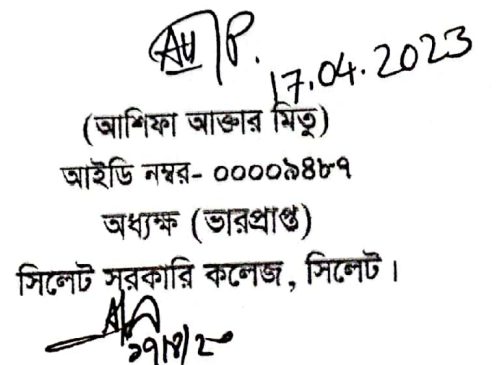 17.04.2023
(আশিফা আক্তার মিতু)
আইডি নম্বর- ০০০০৯৪৮৭
অধ্যক্ষ (ভারপ্রাপ্ত)
সিলেট সরকারি কলেজ, সিলেট।